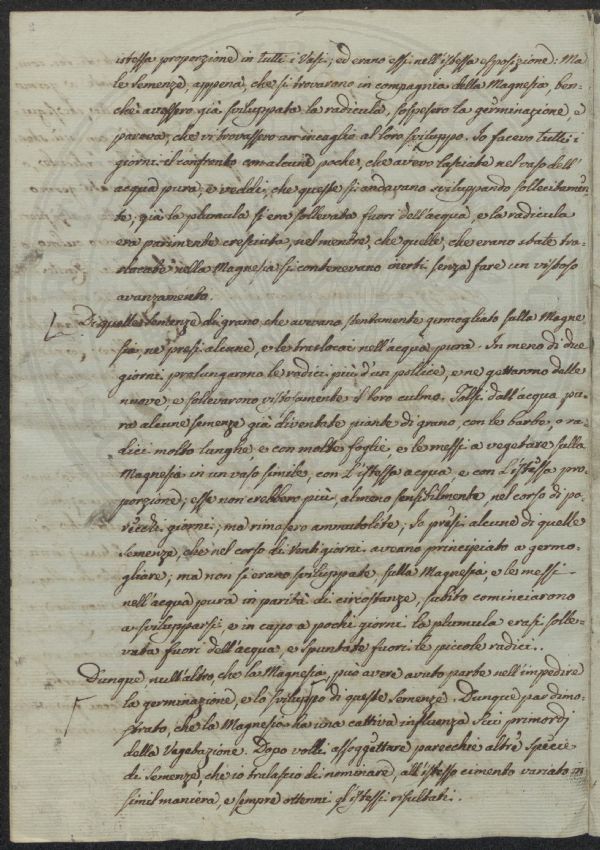 istessa proporzione in tutti i Vasi; ed erano essi nell'istessa esposizione: Ma
le semenze appena, che si trovarono in compagnia della Magnesia, ben-
chè avessero già sviluppata la radicula, sospesero la germinazione, e
pareva, che vi trovassero un incaglio al loro sviluppo. Io facevo tutti i
giorni il confronto con alcune poche, che avevo lasciate nel vaso dell'
acqua pura; e veddi, che queste si andavano sviluppando sollecitamen-
te; già la plumula si era sollevata fuori dell'acqua, e la radicula
era parimente cresciuta, nel mentre, che quelle, che erano state tra-
slocate nella Magnesia si contenevano inerti senza fare un vistoso
avanzamento.
Di quelle semenze di grano, che avevano stentamente germogliato sulla Magne-
sia, ne presi alcune, e le traslocai nell'acqua pura. In meno di due
giorni prolungarono le radici più d'un pollice, e ne gettarono delle
nuove, e sollevarono vistosamente il loro culmo. Tolsi dall'acqua pu-
ra alcune semenze già diventate piante di grano, con le barbe, o ra-
dici molto lunghe, e con molte foglie, e le messi a vegetare sulla
Magnesia in un vaso simile, con l'istessa acqua, e con l'istessa pro-
porzione; esse non crebbero più, almeno sensibilmente nel corso di pa-
recchi giorni; ma rimasero ammutolite; Io presi alcune di quelle
semenze, che nel corso di venti giorni aveano principiato a germo-
gliare; ma non si erano sviluppate sulla Magnesia, e le messi
nell'acqua pura in parità di circostanze, subito cominciarono
a svilupparsi, e in capo a pochi giorni la plumula erasi solle-
vata fuori dell'acqua, e spuntate fuori le piccole radici..
Dunque, null'altro che la Magnesia, può avere avuto parte nell'impedire
la germinazione, e lo sviluppo di queste semenze. Dunque par dimo-
strato, che la Magnesia ha una cattiva influenza sui primordj
della Vegetazione. Dopo volli assoggettare parecchie altre specie
di semenze, che io tralascio di nominare, all'istesso cimento variato in
simil maniera, e sempre ottenni gl'istessi risultati..